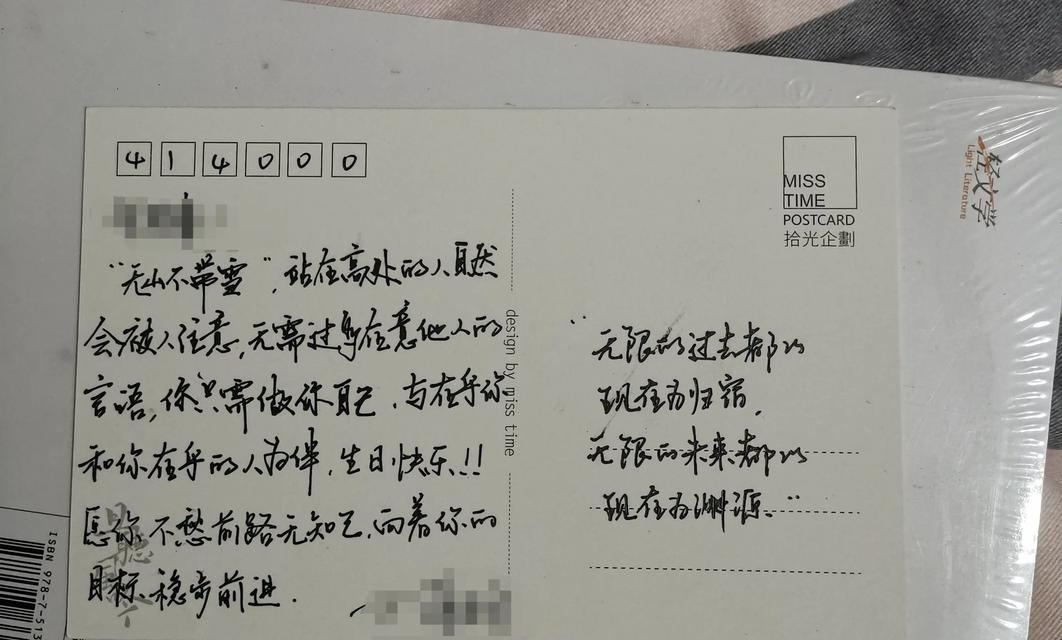 414000
“无山不带雪”,站在高处的人自然
会被人注意,无需过多在意他人的
言语,你只需做你自己,与在乎你
和你在乎的人为伴,生日快乐!!
愿你不愁前路无知己,向着你的
目标,稳步前进.
design by miss time
MISS
TIME
POSTCARD
拾光企劃
“无限的过去都以
现在为归宿,
无限的未来都以
现在为渊源.”
轻文学
Light Literature
ISBN 978-7-513